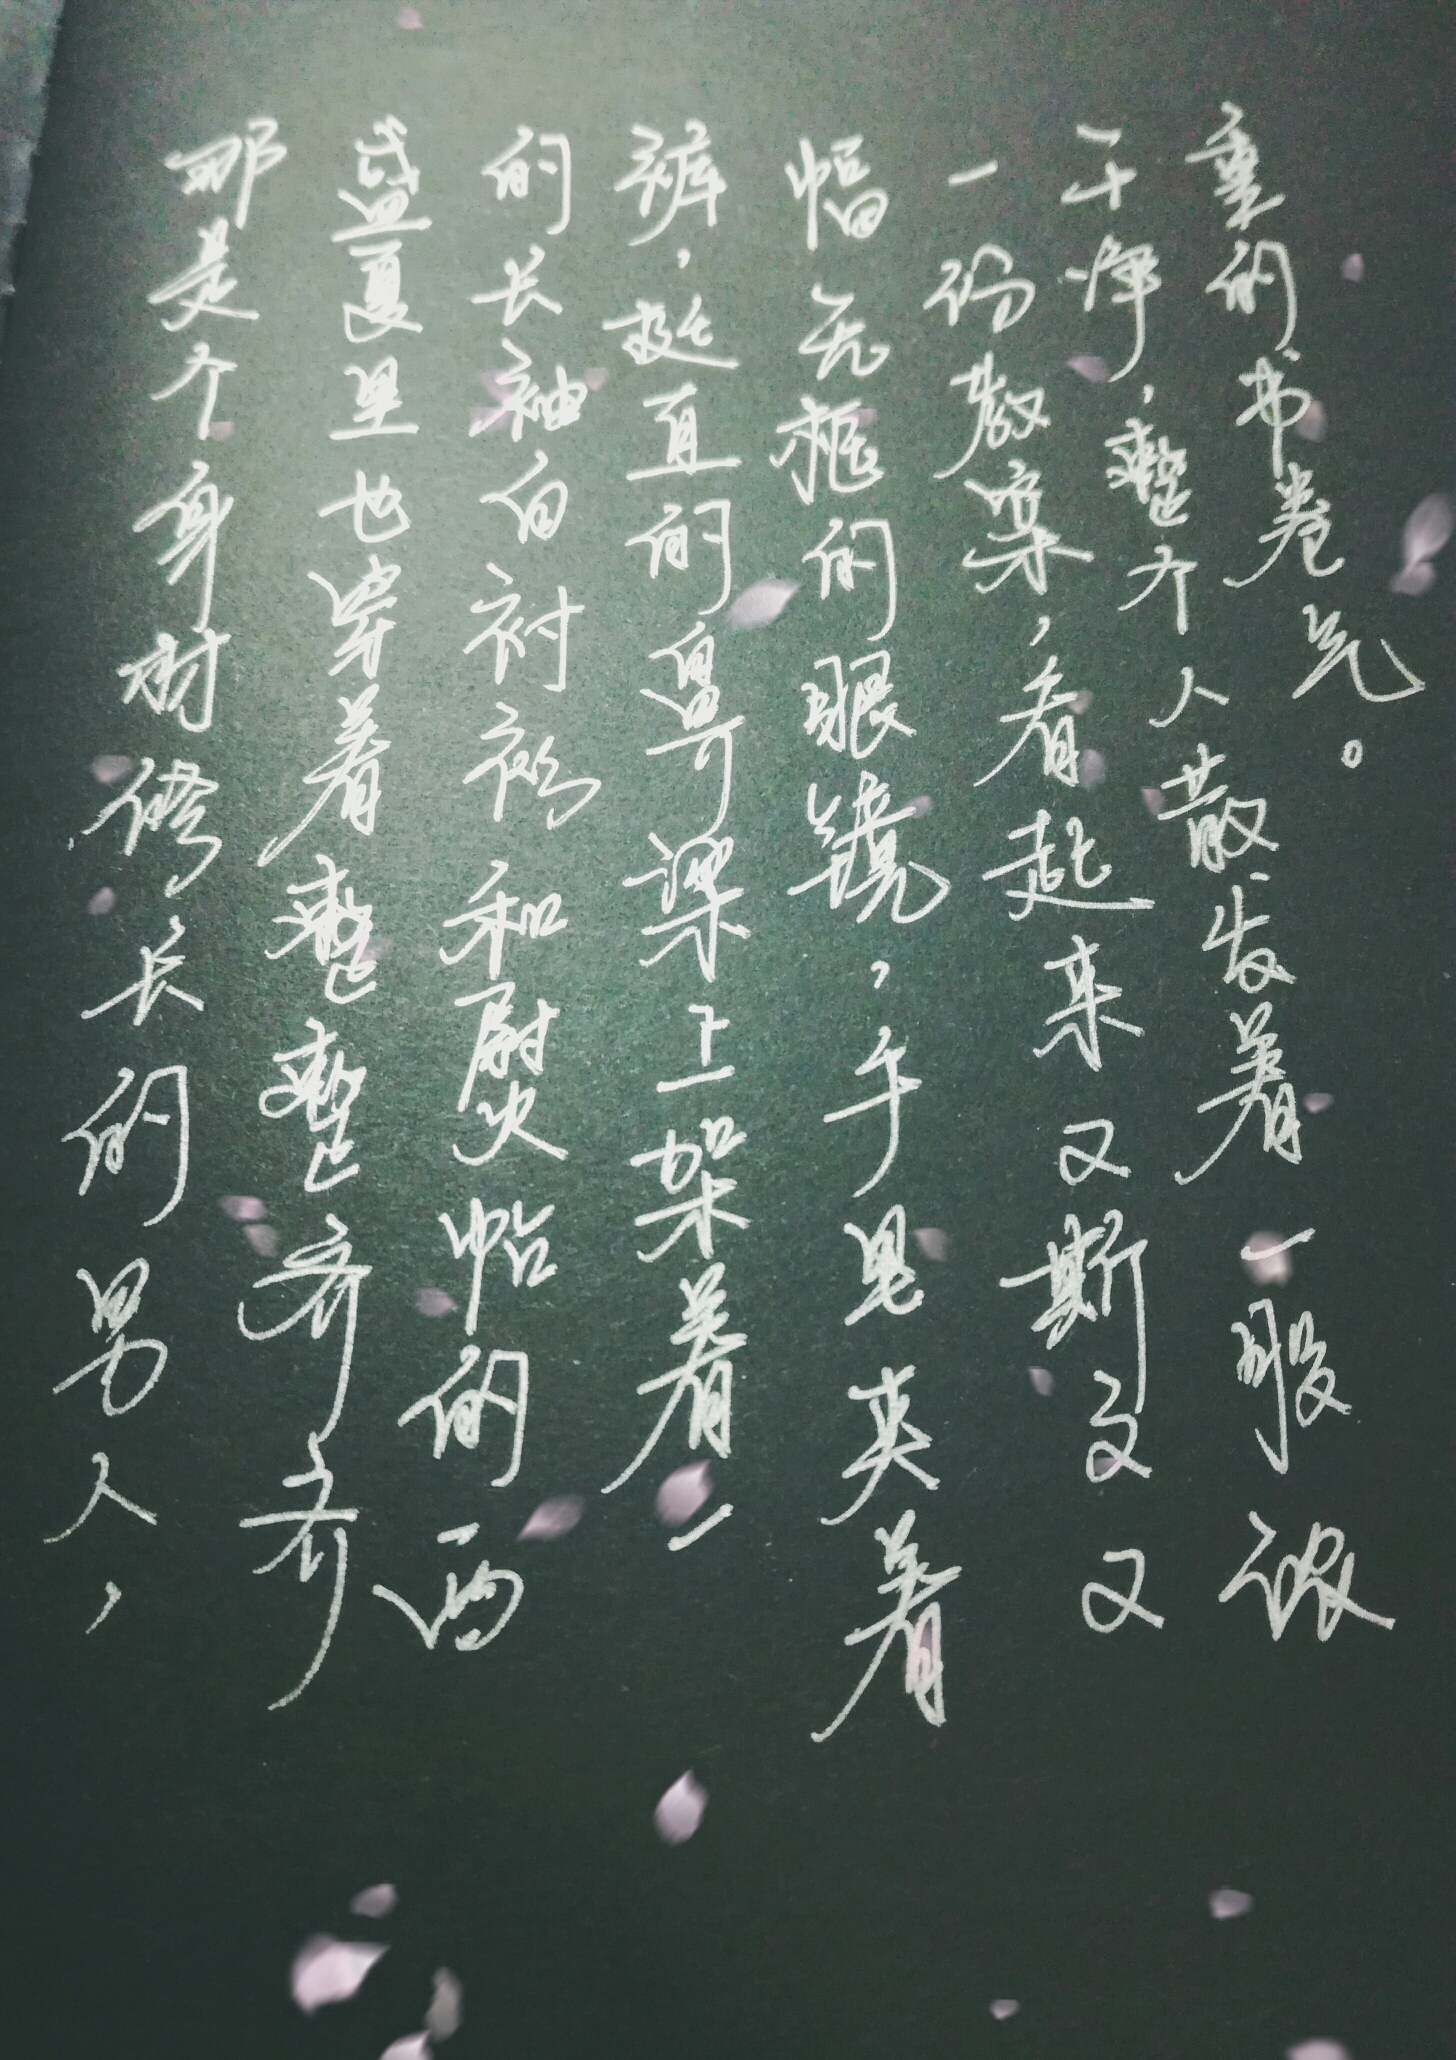 那是个身材修长的男人，
盛夏里也穿着整整齐齐
的长袖白衬衫和熨帖的西
裤，挺直的鼻梁上架着一
幅无框的眼镜，手里夹着
一份教案，看起来又斯文又
干净，整个人散发着一股浓
重的书卷气。